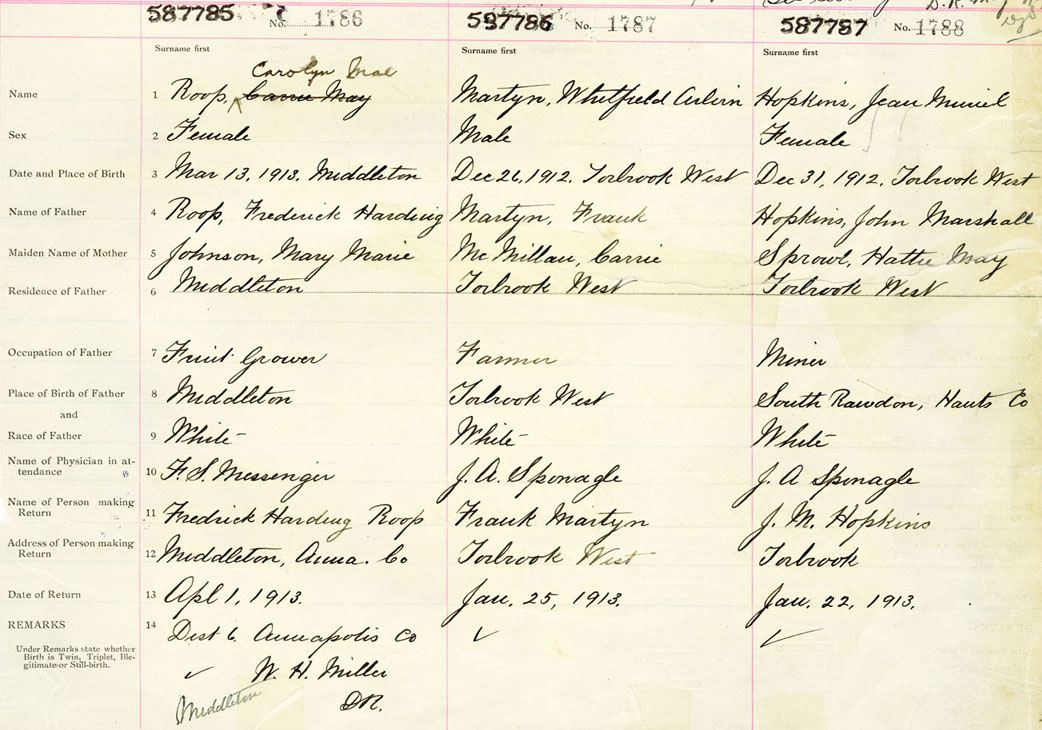 587785 No. 1786 587786 No. 1787 587787 No. 1788
Surname first Surname first Surname first
Carolyn Mae
Name 1 Roop, Carrie May Martyn, Whitfield Hopkins, Jean Muriel
Sex 2 Female Male Female
Date and Place of Birth 3 Mar 13, 1913. Middleton Dec 26, 1912. Torbrook West Dec 31, 1912. Torbrook West
Name of Father 4 Roop, Frederick Harding Martyn, Frank Hopkins, John Marshall
Maiden Name of Mother 5 Johnson, Mary Marie McMillan, Carrie Sprowl, Hattie May
Residence of Father 6 Middleton Torbrook West Torbrook West
Occupation of Father 7 Fruit Grower Farmer Miner
Place of Birth of Father 8 Middleton Torbrook West South Rawdon, Hants Co
and
Race of Father 9 White White White
Name of Physician in at-
tendance 10 F. S. Messenger J. A. Sponagle J. A Sponagle
Name of Person making
Return 11 Fredrick Harding Roop Frank Martyn J. M. Hopkins
Address of Person making
Return 12 Middleton, Anna. Co Torbrook West Torbrook
Date of Return 13 Apl 1, 1913. Jan. 25, 1913. Jan. 22, 1913.
REMARKS 14 Dist 6. Annapolis Co ✓ ✓
Under Remarks state whether
Birth is Twin, Triplet, Ille-
gitimate or Still-birth.
✓ W. H. Miller
Middleton DR.